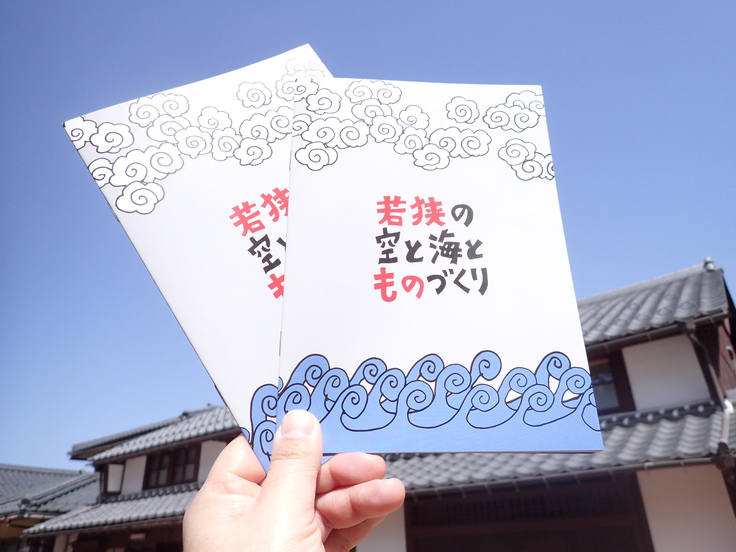 若狭
空と
も
若狭の
空と海と
ものづくり